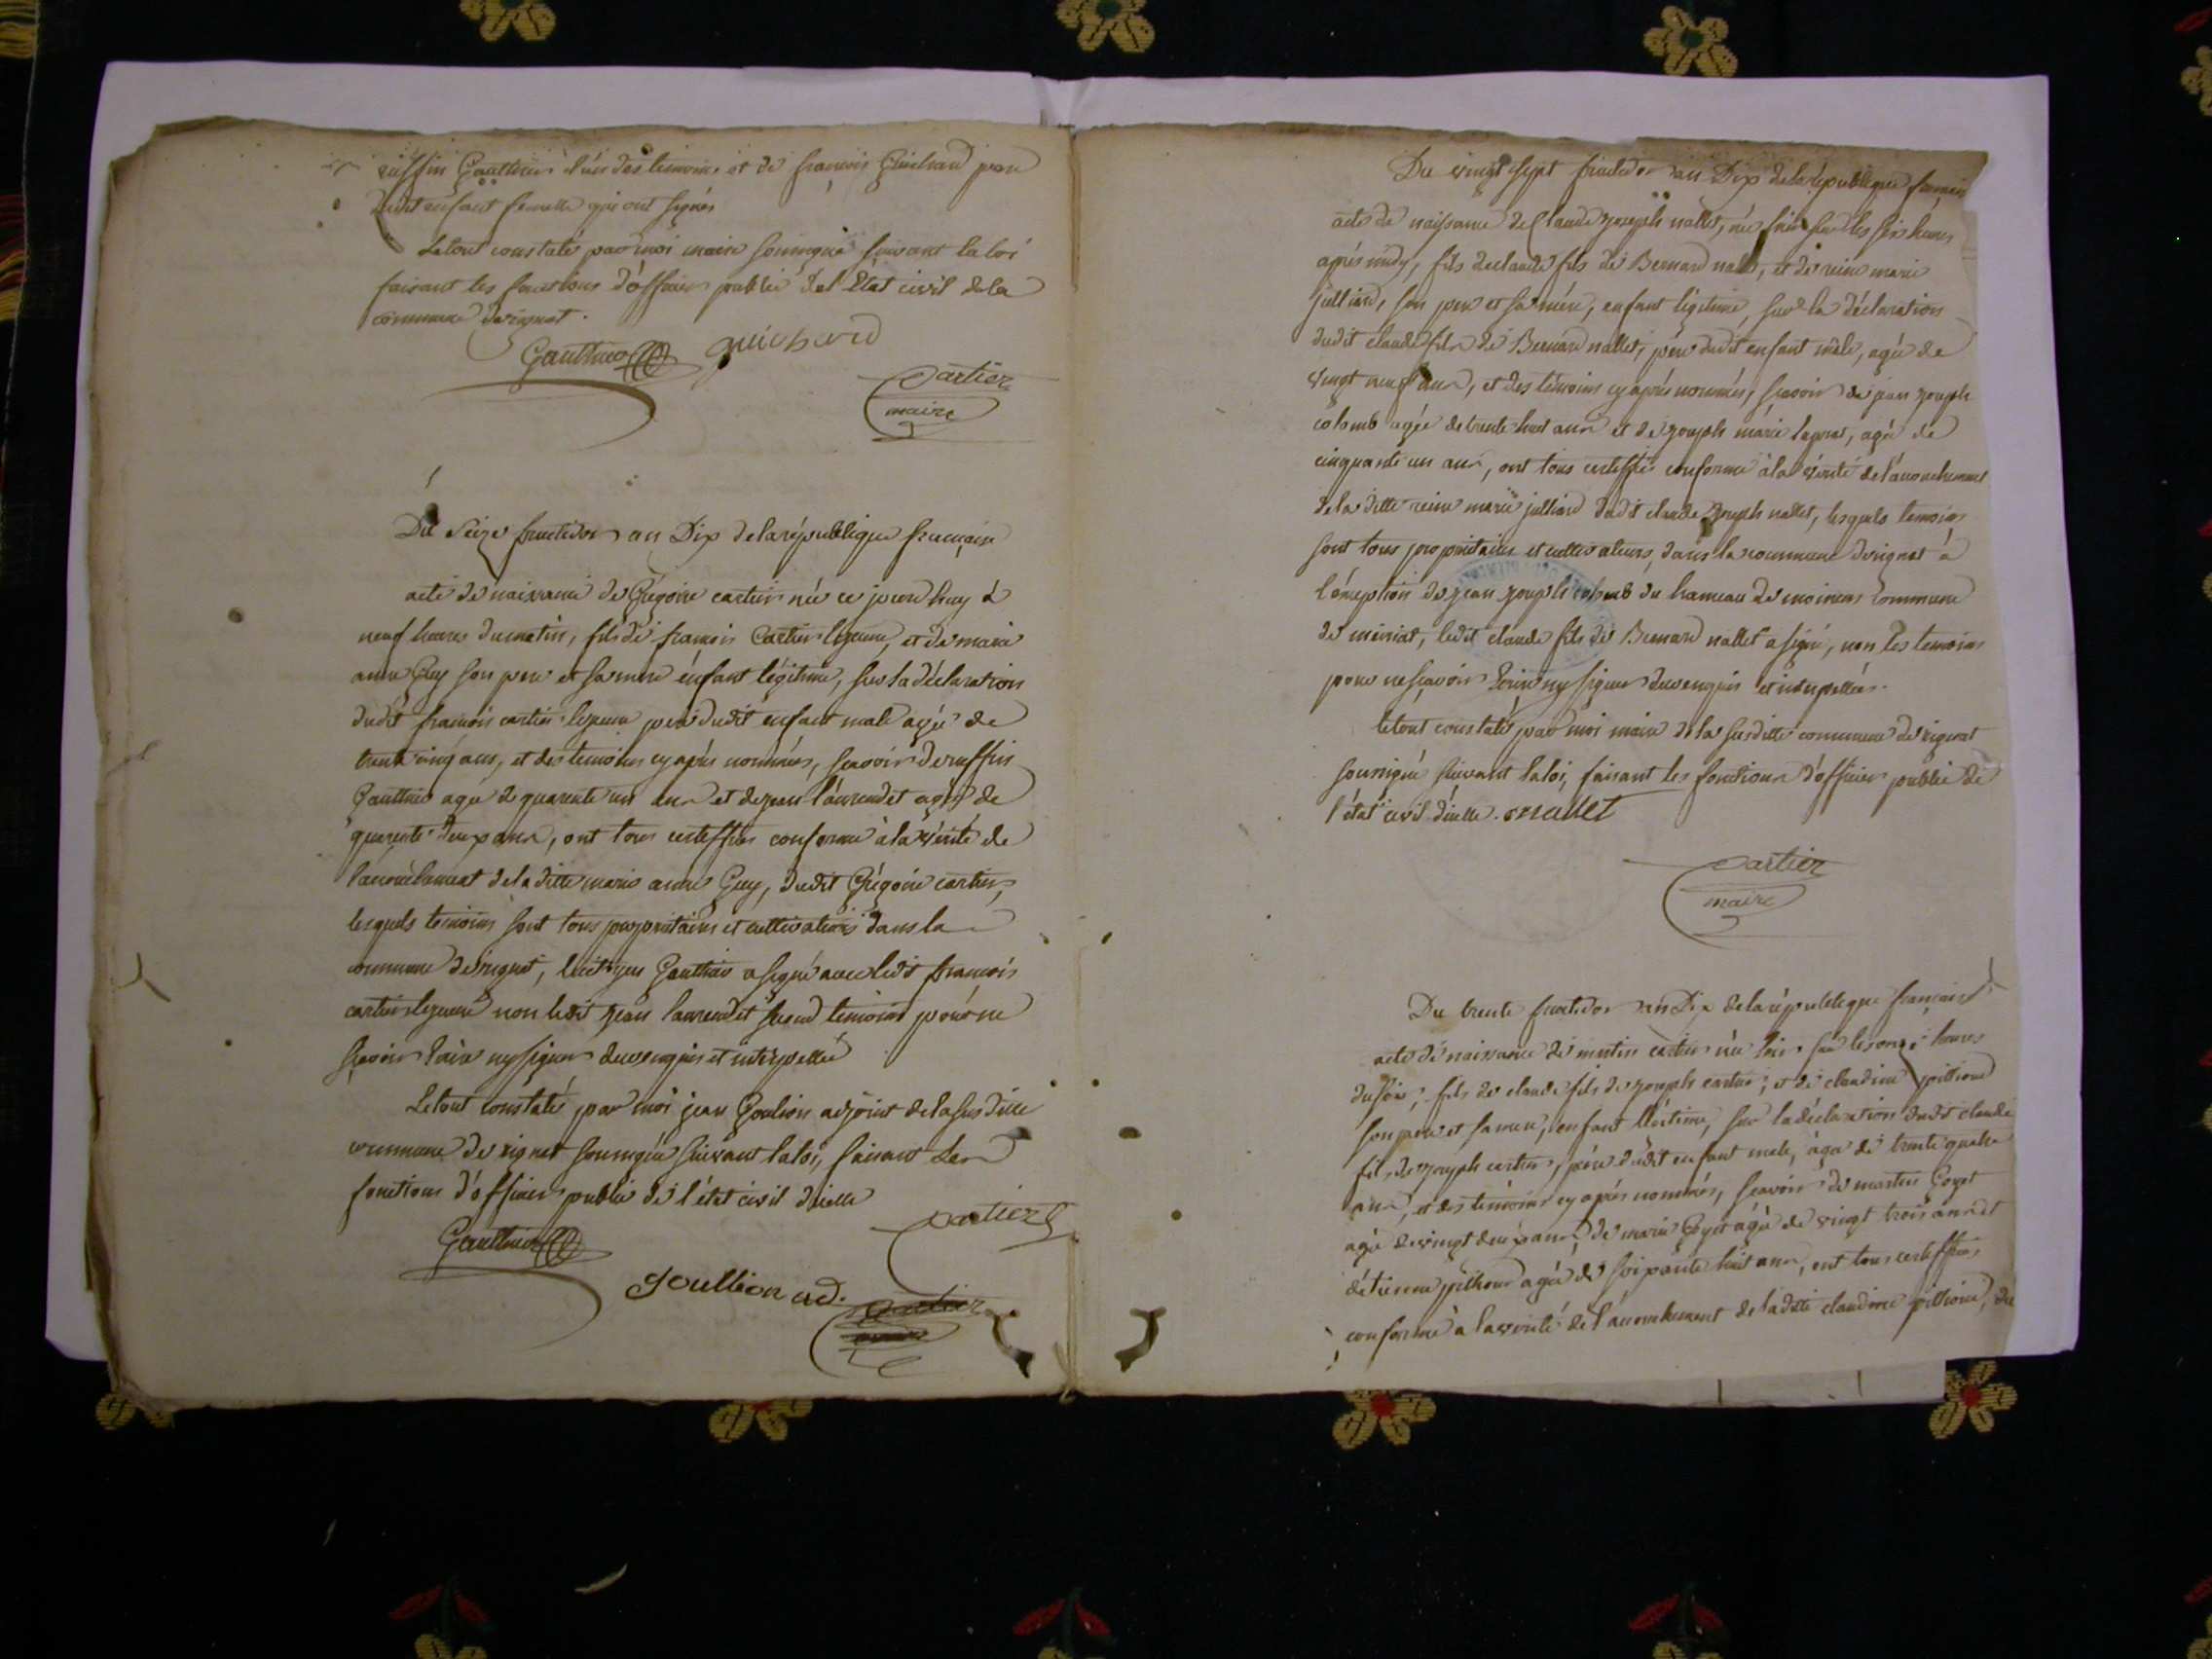 ruffin Gauthier l'un des temoins et de françois Guichard pere
dudit enfant femelle qui ont signés
Le tout constaté par moi maire soussigné suivant la loi
faisant les fonctions d'officier public de l'Etat civil de la
commune de rignat.
Gauthier guichard
Cartier
maire
Du Seize fructidor an Dix de la république françoise
acte de naissance de Grégoire cartier née ce jourd'huy à
neuf heures du matin, fils de françois Cartier lejeune, et de marie
anne Guy son pere et sa mere enfant légitime, sur la déclaration
dudit françois cartier lejeune pere dudit enfant male agé de
trente cinq ans, et des temoins cy après nommés, scavoir de ruffin
Gauthier agé de quarente un ans et de jean laurendet agé de
quarente deux ans, ont tous certiffiés conforme à la vérité de
l'acouchement de la ditte marie anne Guy, dudit Grégoire cartier,
lesquels temoins sont tous propriétaires et cultivateurs dans la
commune de rignat, ledit Gauthier a signé avec ledit françois
cartier lejeune non ledit jean laurendet second temoins pour ne
scavoir l'écrire ny signer de ce enquis et interpellé
Le tout constaté par moi jean Goulion adjoint de la susditte
commune de rignat soussignée suivant la loi, faisant Les
fonctions d'officier public de l'état civil d'icelle
Gauthier Cartier
Goullion ad.
Du vingt sept fructidor an Dix de la république francais
acte de naissance de Claude joseph nallet, née hier sur les six heures
après midy, fils de claude fils de Bernard nallet, et de reine marie
julliard, son pere et sa mère, enfant légitime, sur la déclaration
dudit claude fils de Bernard nallet, père dudit enfant mâle, agée de
vingt neuf ans, et des témoins cy après nommés, scavoir de jean joseph
colomb agée de trente huit ans et de joseph marie agé de
cinquante un ans, ont tous certiffiés conforme à la vérité de l'acouchement
de la ditte reine marie julliard dudit claude joseph nallet, lesquels temoins
sont tous propriétaires et cultivateurs, dans la commune de rignat à
l'éxeption de jean joseph colomb du hameau de moinens commune
de meriat, ledit claude fils de Bernard nallet a signé, non les temoins
pour ne scavoir l'ecrire ny signer de ce enquis et interpellées.
le tout constaté par moi maire de la susditte commune de rignat
soussignée suivant la loi, faisant les fonctions d'officier public de
l'état civil d'icelle. nallet
Cartier
maire
Du trente fructidor an Dix de la république française
acte de naissance de martin cartier née hier sur les onze heures
du soir, fils de claude fils de joseph cartier, et de claudine pithioud
son pere et sa mere, enfant légitime, sur la déclaration dudit claude
fils de joseph cartier, père dudit enfant male, agé de trente quatre
ans, et des témoins cy après nommés, scavoir de martin Goyet
agé de vingt deux ans, de marie Goyet agée de vingt trois ans et
d'étienne pithioud agée de soixante huit ans, ont tous certiffiés
conforme à la vérité de l'acouchement de la ditte claudine pithioud, du